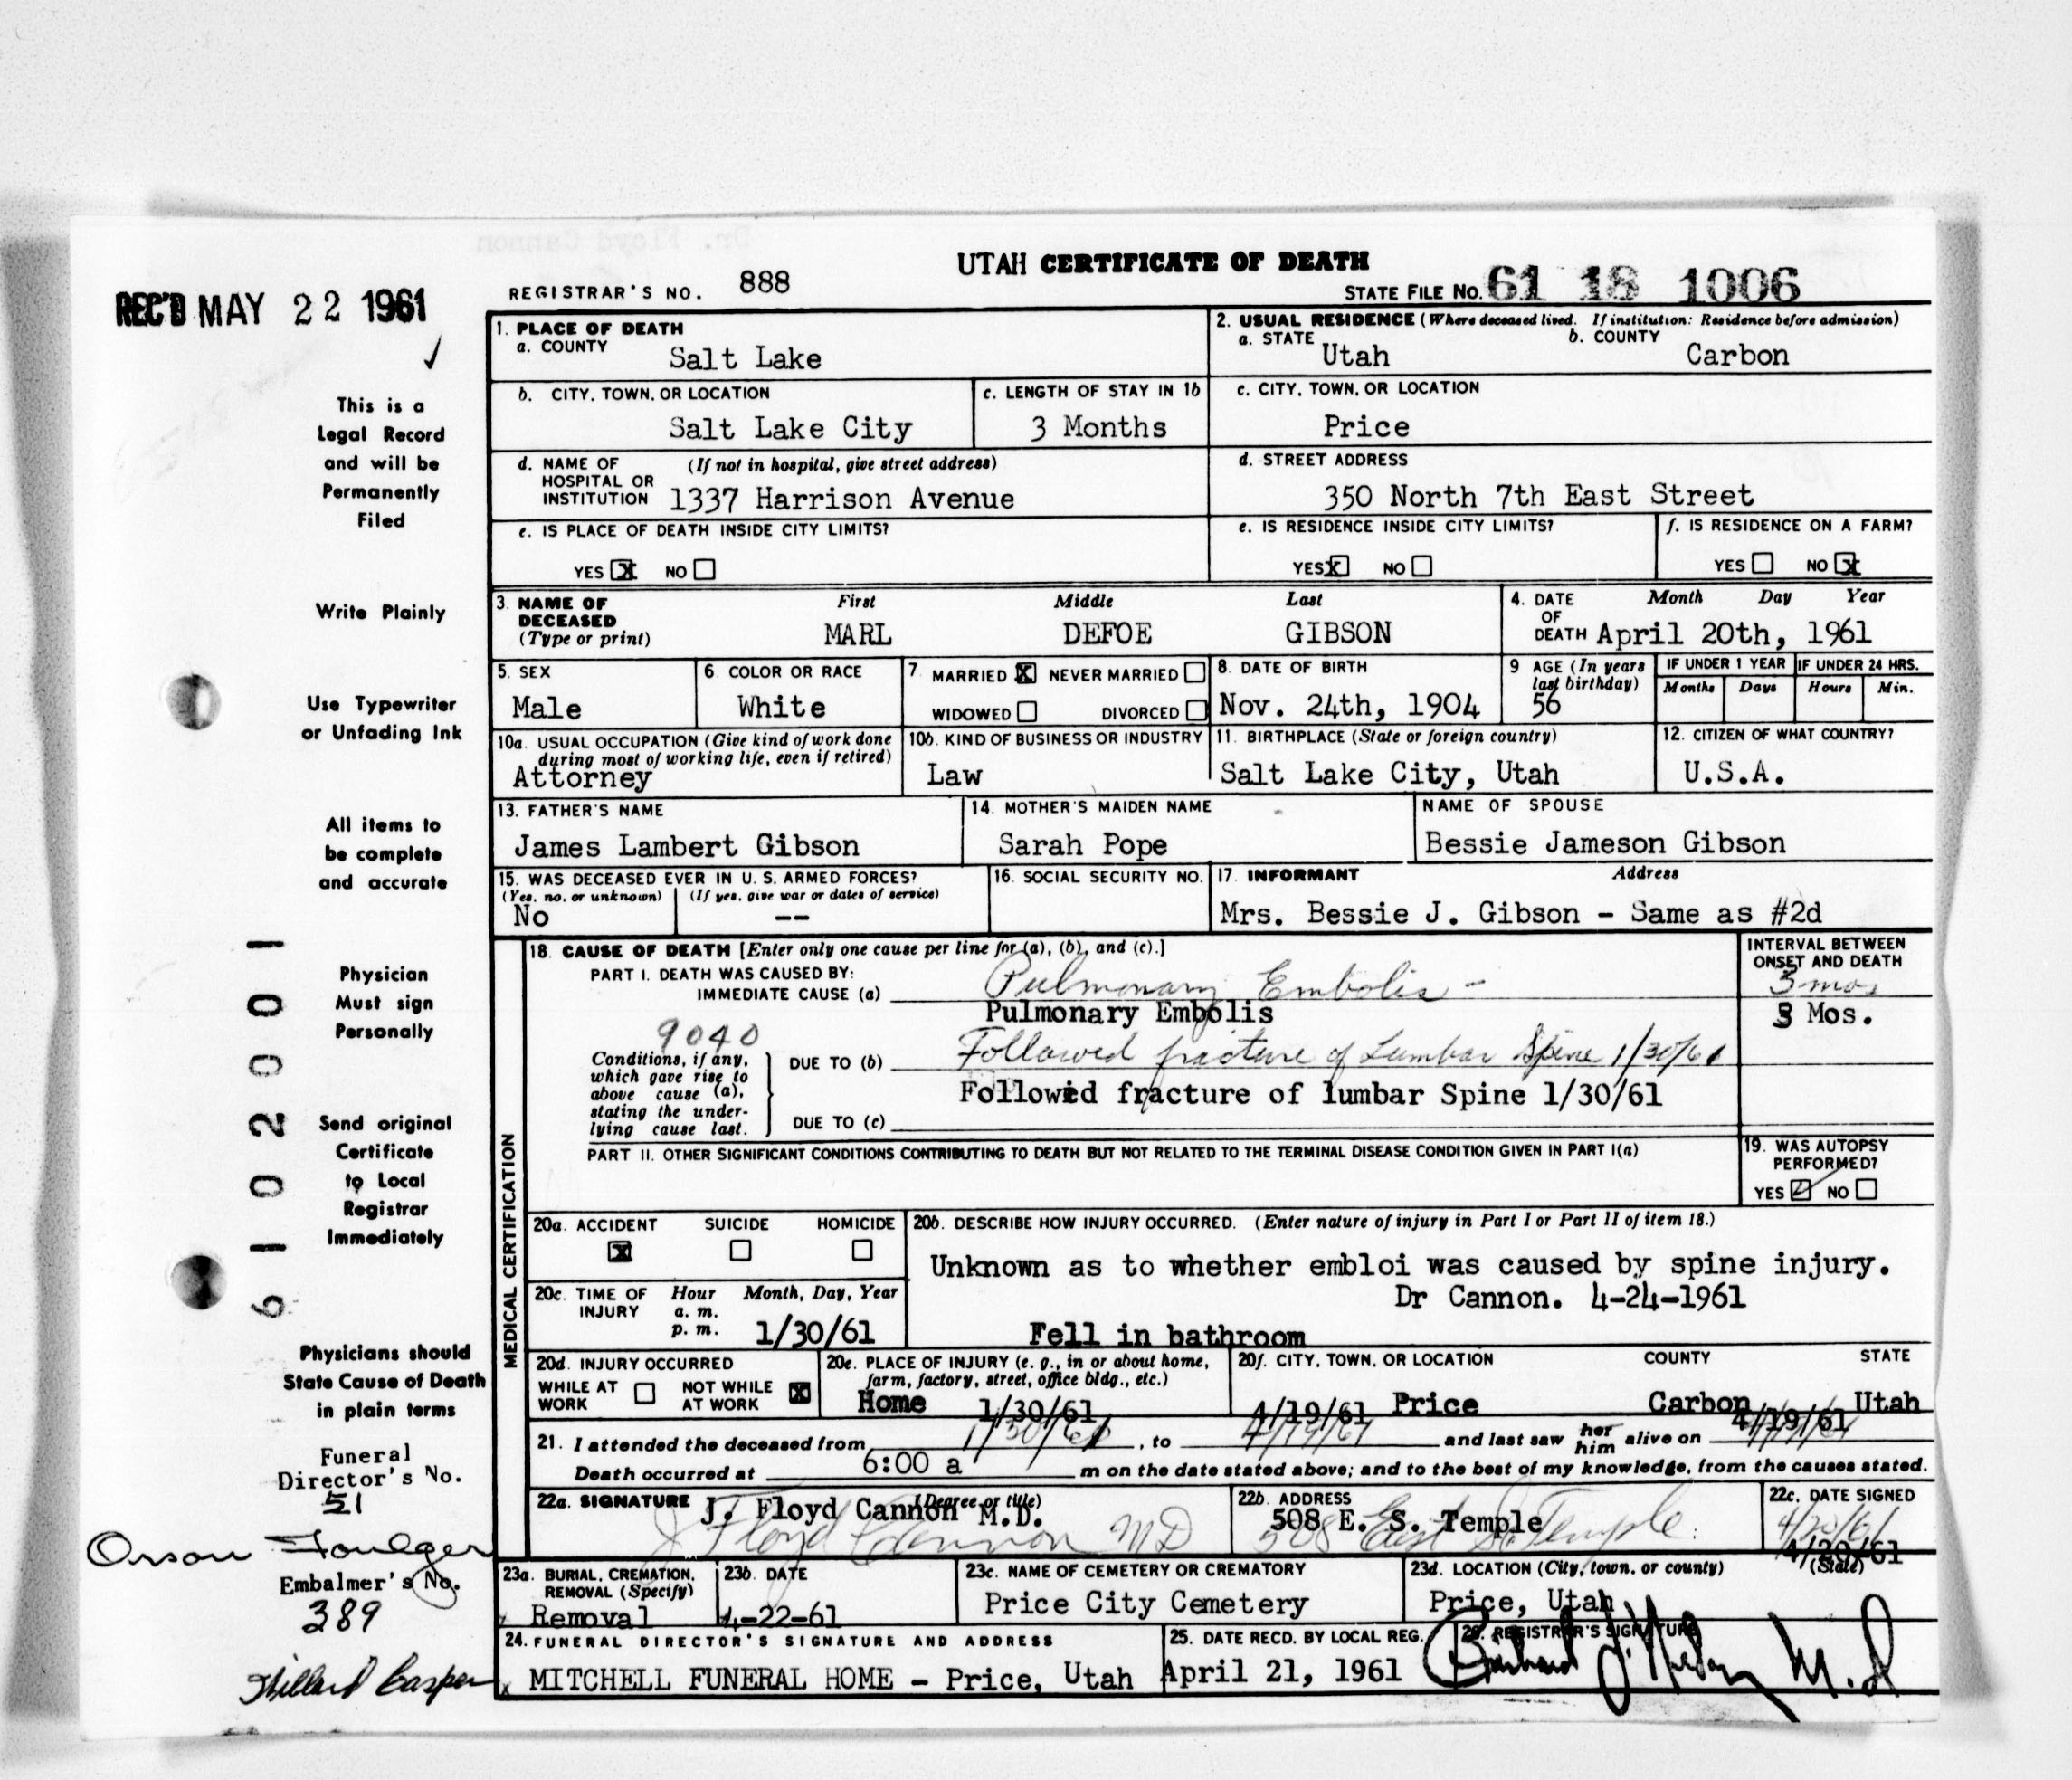 UTAH CERTIFICATE OF DEATH
REGISTRAR'S NO. 888
STATE FILE NO. 61 18 1006
REC'D MAY 22 1961
1. PLACE OF DEATH
a. COUNTY Salt Lake
2. USUAL RESIDENCE (Where deceased lived. If institution: Residence before admission)
a. STATE Utah b. COUNTY Carbon
b. CITY, TOWN, OR LOCATION Salt Lake City
c. LENGTH OF STAY IN 1b 3 Months
c. CITY, TOWN, OR LOCATION Price
d. NAME OF HOSPITAL OR INSTITUTION (If not in hospital, give street address) 1337 Harrison Avenue
d. STREET ADDRESS 350 North 7th East Street
e. IS PLACE OF DEATH INSIDE CITY LIMITS?
YES X NO
e. IS RESIDENCE INSIDE CITY LIMITS?
YES X NO
f. IS RESIDENCE ON A FARM?
YES NO X
3. NAME OF DECEASED (Type or print)
First Middle Last
MARL DEFOE GIBSON
4. DATE OF DEATH Month Day Year
April 20th, 1961
5. SEX Male
6. COLOR OR RACE White
7. MARRIED X NEVER MARRIED
WIDOWED DIVORCED
8. DATE OF BIRTH Nov. 24th, 1904
9 AGE (In years last birthday) 56
IF UNDER 1 YEAR IF UNDER 24 HRS.
Months Days Hours Min.
10a. USUAL OCCUPATION (Give kind of work done during most of working life, even if retired)
Attorney
10b. KIND OF BUSINESS OR INDUSTRY
Law
11. BIRTHPLACE (State or foreign country)
Salt Lake City, Utah
12. CITIZEN OF WHAT COUNTRY?
U.S.A.
13. FATHER'S NAME
James Lambert Gibson
14. MOTHER'S MAIDEN NAME
Sarah Pope
NAME OF SPOUSE
Bessie Jameson Gibson
15. WAS DECEASED EVER IN U. S. ARMED FORCES?
(Yes, no, or unknown) (If yes, give war or dates of service)
No --
16. SOCIAL SECURITY NO.
17. INFORMANT Address
Mrs. Bessie J. Gibson - Same as #2d
MEDICAL CERTIFICATION
18. CAUSE OF DEATH [Enter only one cause per line for (a), (b), and (c).]
INTERVAL BETWEEN ONSET AND DEATH
PART I. DEATH WAS CAUSED BY:
IMMEDIATE CAUSE (a) Pulmonary Embolis - 3 mos
Pulmonary Embolis 3 Mos.
9040
Conditions, if any, which gave rise to above cause (a), stating the underlying cause last.
DUE TO (b) Followed fracture of Lumbar Spine 1/30/61
Followed fracture of lumbar Spine 1/30/61
DUE TO (c)
PART II. OTHER SIGNIFICANT CONDITIONS CONTRIBUTING TO DEATH BUT NOT RELATED TO THE TERMINAL DISEASE CONDITION GIVEN IN PART I(a)
19. WAS AUTOPSY PERFORMED?
YES NO
20a. ACCIDENT SUICIDE HOMICIDE
X
20b. DESCRIBE HOW INJURY OCCURRED. (Enter nature of injury in Part I or Part II of item 18.)
Unknown as to whether embloi was caused by spine injury.
Dr Cannon. 4-24-1961
Fell in bathroom
20c. TIME OF INJURY Hour Month, Day, Year
a. m.
p. m. 1/30/61
20d. INJURY OCCURRED
WHILE AT WORK NOT WHILE AT WORK X
20e. PLACE OF INJURY (e. g., in or about home, farm, factory, street, office bldg., etc.)
Home
20f. CITY, TOWN, OR LOCATION COUNTY STATE
Price Carbon Utah
1/30/61 4/19/61 4/19/61
21. I attended the deceased from 1/30/61, to 4/19/61 and last saw her him alive on 4/19/61
Death occurred at 6:00 a m on the date stated above; and to the best of my knowledge, from the causes stated.
22a. SIGNATURE (Degree or title)
J. Floyd Cannon M.D.
J Floyd Cannon MD
22b. ADDRESS
508 E. S. Temple
508 East So Temple
22c. DATE SIGNED
4/20/61
4/20/61
23a. BURIAL, CREMATION, REMOVAL (Specify)
Removal
23b. DATE
4-22-61
23c. NAME OF CEMETERY OR CREMATORY
Price City Cemetery
23d. LOCATION (City, town, or county) (State)
Price, Utah
24. FUNERAL DIRECTOR'S SIGNATURE AND ADDRESS
MITCHELL FUNERAL HOME - Price, Utah
25. DATE RECD. BY LOCAL REG.
April 21, 1961
26. REGISTRAR'S SIGNATURE
M.D
This is a
Legal Record
and will be
Permanently
Filed
Write Plainly
Use Typewriter
or Unfading Ink
All items to
be complete
and accurate
Physician
Must sign
Personally
Send original
Certificate
to Local
Registrar
Immediately
Physicians should
State Cause of Death
in plain terms
Funeral
Director's No.
51
Orson Foulger
Embalmer's No.
389
61 02001